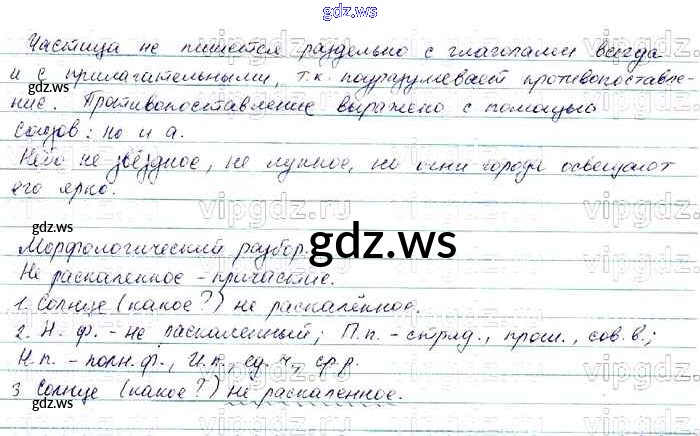 gdz.ws
Частица не пишется раздельно с глаголами всегда
и с прилагательными, т.к. подразумевает противопоставле-
ние. Противопоставление выражено с помощью
союзов: но и а.
Небо не звёздное, не лунное, но огни города освещают
его ярко.
Морфологический разбор.
Не раскаленное - причастие.
1. Солнце (какое?) не раскалённое.
2. Н. ф. - не раскаленный; П.п. - страд., прош., сов.в.;
Н.п. - полн.ф., И.п., ед.ч., ср.р.
3 Солнце (какое?) не раскаленное.
gdz.ws
gdz.ws
gdz.ws
gdz.ws
gdz.ws
vipgdz.ru